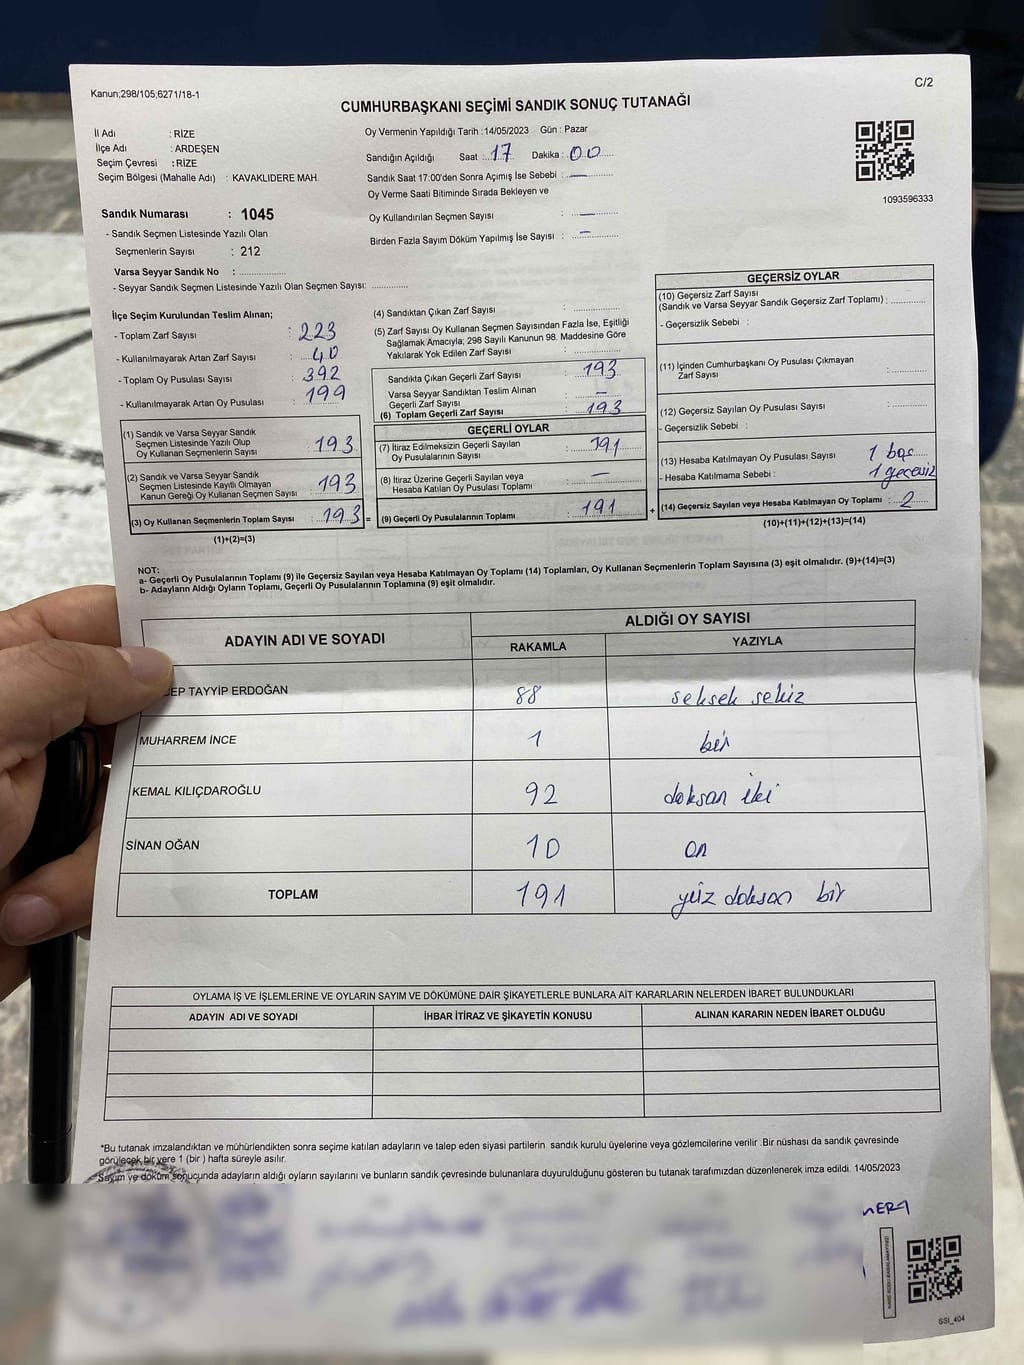 Kanun;298/105;6271/18-1
C/2
CUMHURBAŞKANI SEÇİMİ SANDIK SONUÇ TUTANAĞI
İl Adı : RİZE
İlçe Adı : ARDEŞEN
Seçim Çevresi : RİZE
Seçim Bölgesi (Mahalle Adı) : KAVAKLIDERE MAH.
Sandık Numarası : 1045
- Sandık Seçmen Listesinde Yazılı Olan
Seçmenlerin Sayısı : 212
Varsa Seyyar Sandık No : ..............
- Seyyar Sandık Seçmen Listesinde Yazılı Olan Seçmen Sayısı: ............
Oy Vermenin Yapıldığı Tarih :14/05/2023 Gün : Pazar
Sandığın Açıldığı Saat : 17 Dakika : 00
Sandık Saat 17:00'den Sonra Açımış İse Sebebi : —
Oy Verme Saati Bitiminde Sırada Bekleyen ve
Oy Kullandırılan Seçmen Sayısı : —
Birden Fazla Sayım Döküm Yapılmış İse Sayısı : —
1093596333
İlçe Seçim Kurulundan Teslim Alınan;
- Toplam Zarf Sayısı : 223
- Kullanılmayarak Artan Zarf Sayısı : 40
- Toplam Oy Pusulası Sayısı : 392
- Kullanılmayarak Artan Oy Pusulası : 199
(1) Sandık ve Varsa Seyyar Sandık
Seçmen Listesinde Yazılı Olup
Oy Kullanan Seçmenlerin Sayısı : 193
(2) Sandık ve Varsa Seyyar Sandık
Seçmen Listesinde Kayıtlı Olmayan
Kanun Gereği Oy Kullanan Seçmen Sayısı : 193
(3) Oy Kullanan Seçmenlerin Toplam Sayısı : 193 =
(1)+(2)=(3)
(4) Sandıktan Çıkan Zarf Sayısı : ..............
(5) Zarf Sayısı Oy Kullanan Seçmen Sayısından Fazla İse, Eşitliği
Sağlamak Amacıyla; 298 Sayılı Kanunun 98. Maddesine Göre
Yakılarak Yok Edilen Zarf Sayısı : ..............
Sandıkta Çıkan Geçerli Zarf Sayısı : 193
Varsa Seyyar Sandıktan Teslim Alınan
Geçerli Zarf Sayısı : —
(6) Toplam Geçerli Zarf Sayısı : 193
GEÇERLİ OYLAR
(7) İtiraz Edilmeksizin Geçerli Sayılan
Oy Pusulalarının Sayısı : 191
(8) İtiraz Üzerine Geçerli Sayılan veya
Hesaba Katılan Oy Pusulası Toplamı : —
(9) Geçerli Oy Pusulalarının Toplamı : 191 +
GEÇERSİZ OYLAR
(10) Geçersiz Zarf Sayısı
(Sandık ve Varsa Seyyar Sandık Geçersiz Zarf Toplamı) : ............
- Geçersizlik Sebebi :
(11) İçinden Cumhurbaşkanı Oy Pusulası Çıkmayan
Zarf Sayısı : ............
(12) Geçersiz Sayılan Oy Pusulası Sayısı : ............
- Geçersizlik Sebebi :
(13) Hesaba Katılmayan Oy Pusulası Sayısı : 1 boş
- Hesaba Katılmama Sebebi : 1 geçersiz
(14) Geçersiz Sayılan veya Hesaba Katılmayan Oy Toplamı : 2
(10)+(11)+(12)+(13)=(14)
NOT:
a- Geçerli Oy Pusulalarının Toplamı (9) ile Geçersiz Sayılan veya Hesaba Katılmayan Oy Toplamı (14) Toplamları, Oy Kullanan Seçmenlerin Toplam Sayısına (3) eşit olmalıdır. (9)+(14)=(3)
b- Adayların Aldığı Oyların Toplamı, Geçerli Oy Pusulalarının Toplamına (9) eşit olmalıdır.
ADAYIN ADI VE SOYADI ALDIĞI OY SAYISI
RAKAMLA YAZIYLA
EP TAYYİP ERDOĞAN 88 seksek sekiz
MUHARREM İNCE 1 bir
KEMAL KILIÇDAROĞLU 92 doksan iki
SİNAN OĞAN 10 on
TOPLAM 191 yüz doksan bir
OYLAMA İŞ VE İŞLEMLERİNE VE OYLARIN SAYIM VE DÖKÜMÜNE DAİR ŞİKAYETLERLE BUNLARA AİT KARARLARIN NELERDEN İBARET BULUNDUKLARI
ADAYIN ADI VE SOYADI İHBAR İTİRAZ VE ŞİKAYETİN KONUSU ALINAN KARARIN NEDEN İBARET OLDUĞU
*Bu tutanak imzalandıktan ve mühürlendikten sonra seçime katılan adayların ve talep eden siyasi partilerin sandık kurulu üyelerine veya gözlemcilerine verilir .Bir nüshası da sandık çevresinde
görülecek bir yere 1 (bir ) hafta süreyle asılır.
Sayım ve döküm sonucunda adayların aldığı oyların sayılarını ve bunların sandık çevresinde bulunanlara duyurulduğunu gösteren bu tutanak tarafımızdan düzenlenerek imza edildi. 14/05/2023
SSI_404